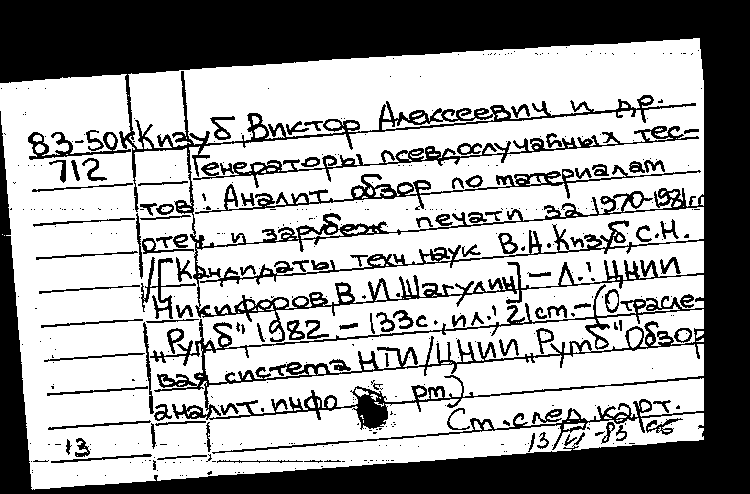 83-50к Кизуб, Виктор Алексеевич и др.
712 Генераторы псевдослучайных тес-
тов : Аналит. обзор по материалам
отеч. и зарубеж. печати за 1970-1981гг
/[Кандидаты техн. наук В.А.Кизуб, С.Н.
Никифоров, В.И.Шагулин]. — Л.: ЦНИИ
„Румб", 1982. — 133с., ил.; 21см. — (Отрасле-
вая система НТИ/ЦНИИ „Румб" Обзор
аналит. инфо рм.).
См. след. карт.
13 13/VI -83